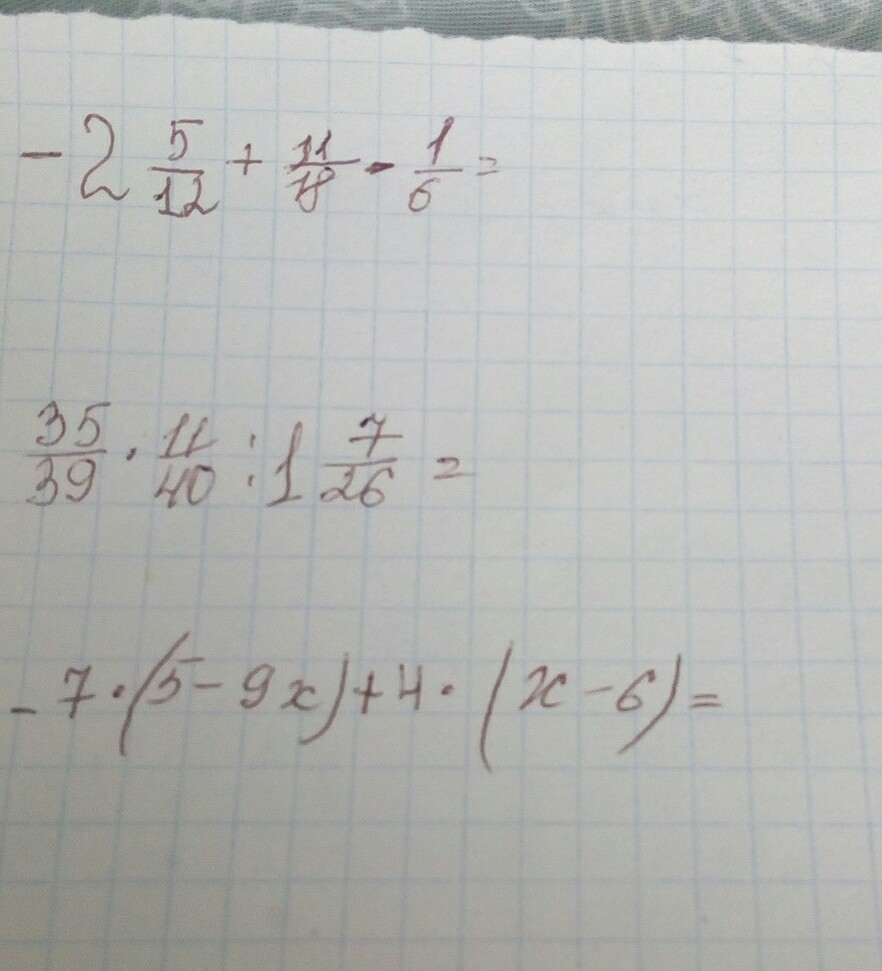 -2 5/12 + 11/18 - 1/6 =
35/39 · 11/40 : 1 7/26 =
-7·(5-9x)+4·(x-6)=